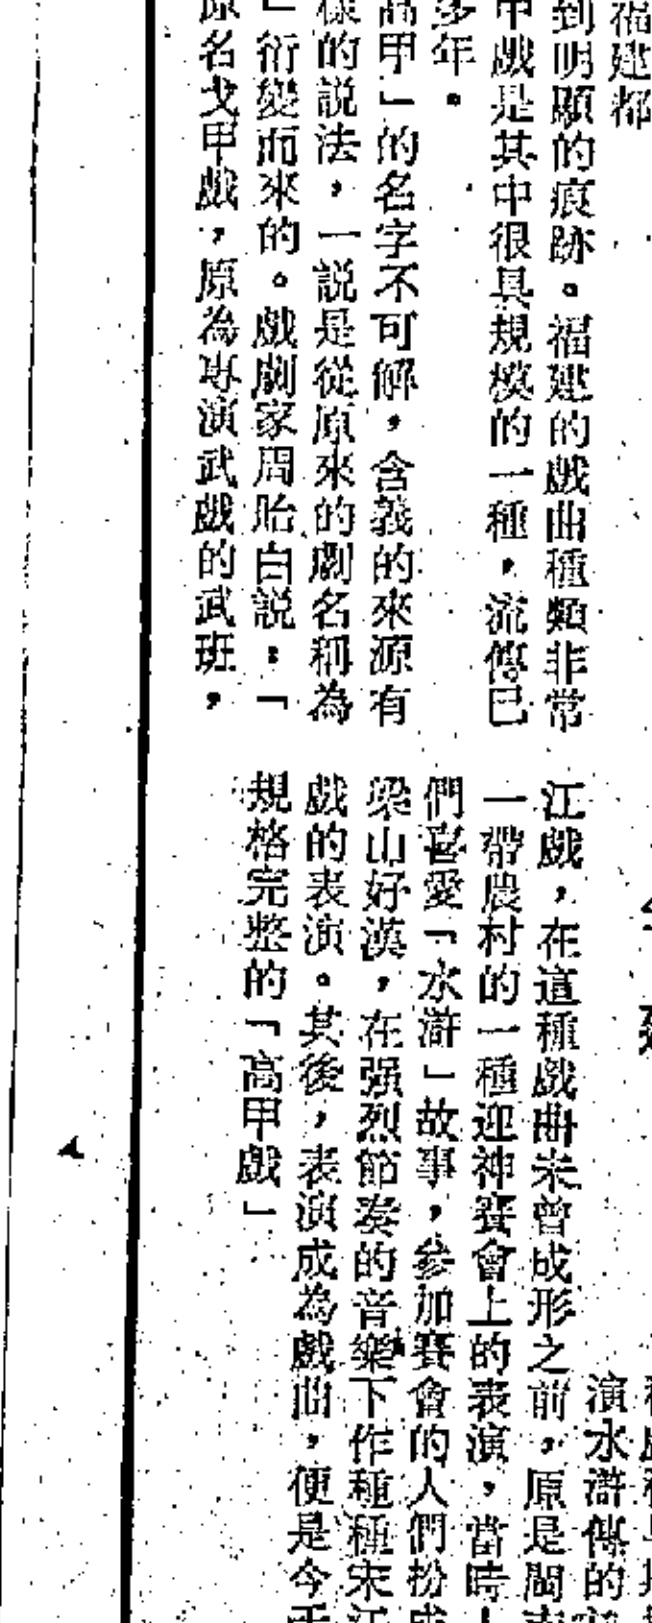 福建都
到明顯的痕跡。福建的戲曲種類非常
甲戲是其中很具規模的一種，流傳已
多年。
高甲」的名字不可解，含義的來源有
樣的説法，一説是從原來的劇名稱為
」衍變而來的。戲劇家周貽白説：「
原名戈甲戲，原為專演武戲的武班，
演水滸傳的
江戲，在這種戲曲未曾成形之前，原是閩南
一帶農村的一種迎神賽會上的表演，當時
們喜愛「水滸」故事，參加賽會的人們扮成
梁山好漢，在强烈節奏的音樂下作種種宋江
戲的表演。其後，表演成為戲曲，便是今天
規格完整的「高甲戲」